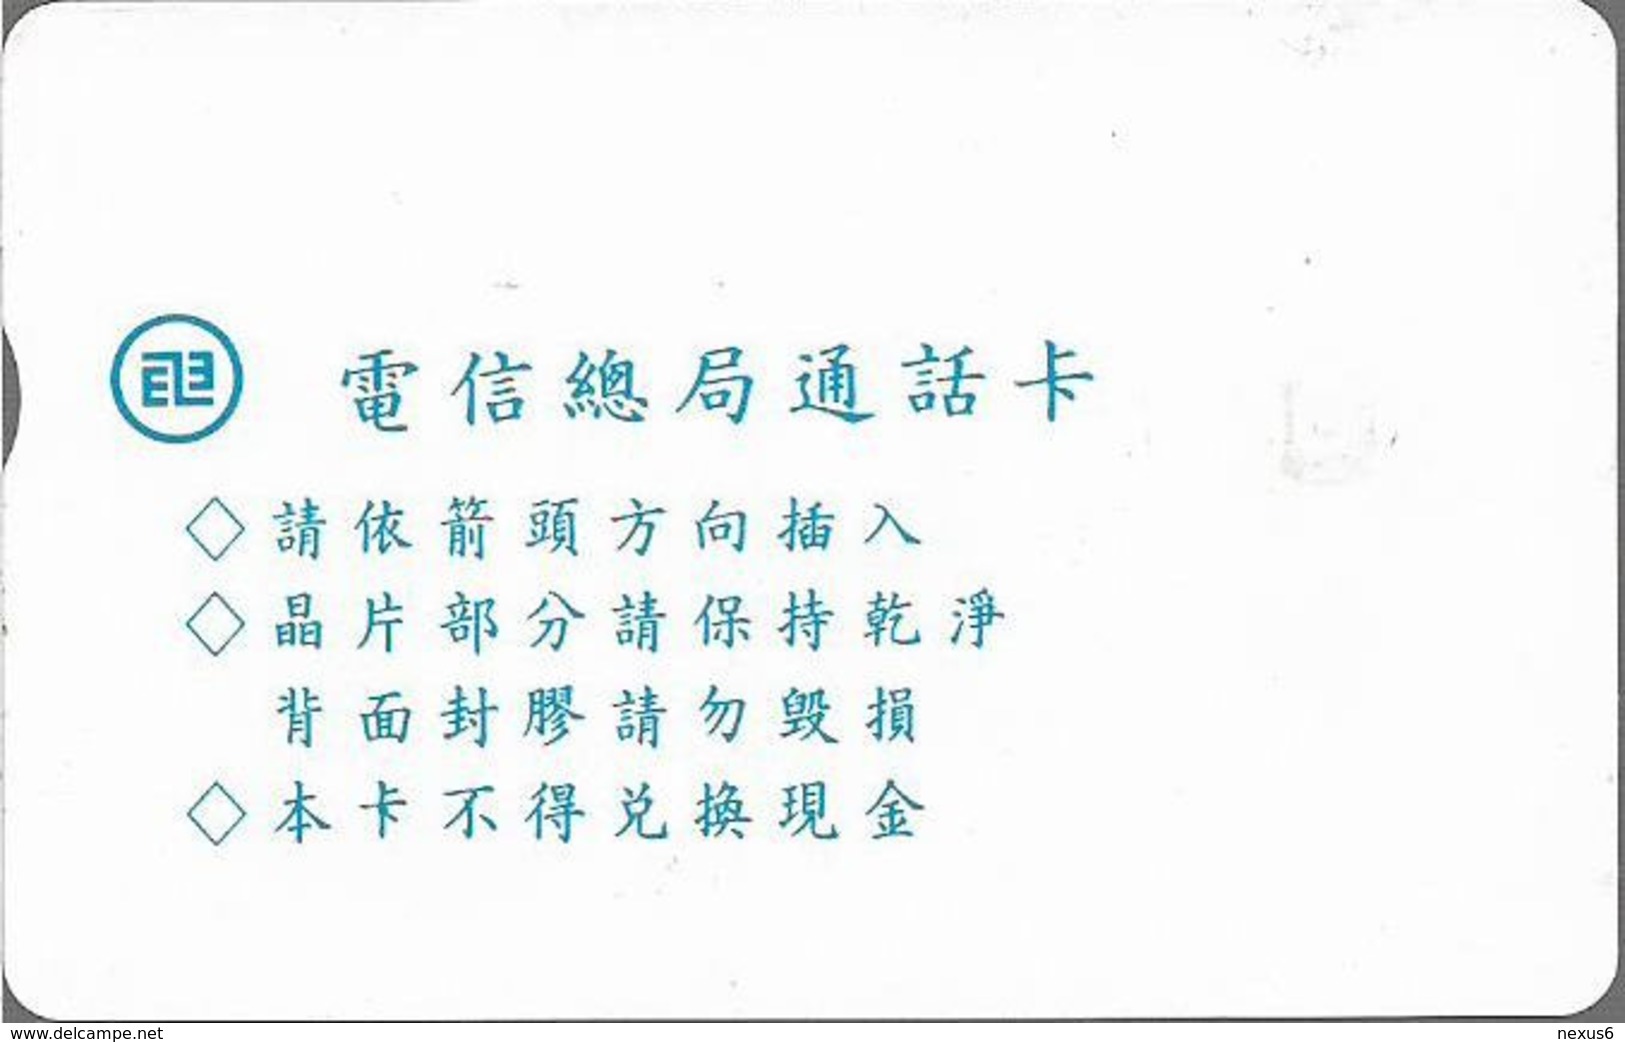 電信總局通話卡
◇請依箭頭方向插入
◇晶片部分請保持乾淨
背面封膠請勿毀損
◇本卡不得兌換現金
www.delcampe.net
nexus6